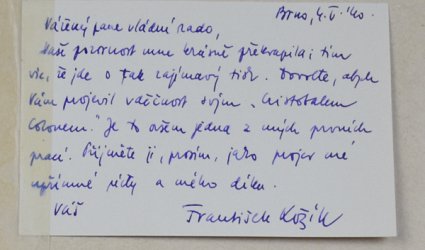 Brno, 4. V. '40.
Vážený pane vládní rado,
Vaše pozornost mne krásně překvapila i tím
víc, že jde o tak zajímavý tisk. Dovolte, abych
Vám projevil vděčnost svým „Cristobalem
Colonem." Je to ovšem jedna z mých prvních
prací. Přijměte ji, prosím, jako projev mé
upřímné úcty a mého díku.
Váš
František Kožík